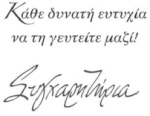 Κάθε δυνατή ευτυχία
να τη γευτείτε μαζί!
Συγχαρητήρια